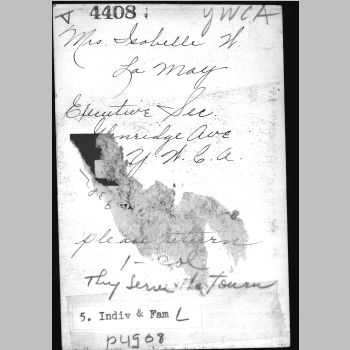 A 4408 YWCA
Mrs. Isobelle W.
La May
Executive Sec.
Glenridge Ave
Y. W. C. A.
please return
1 - col
They Serve the Town
5. Indiv & Fam L
P4908